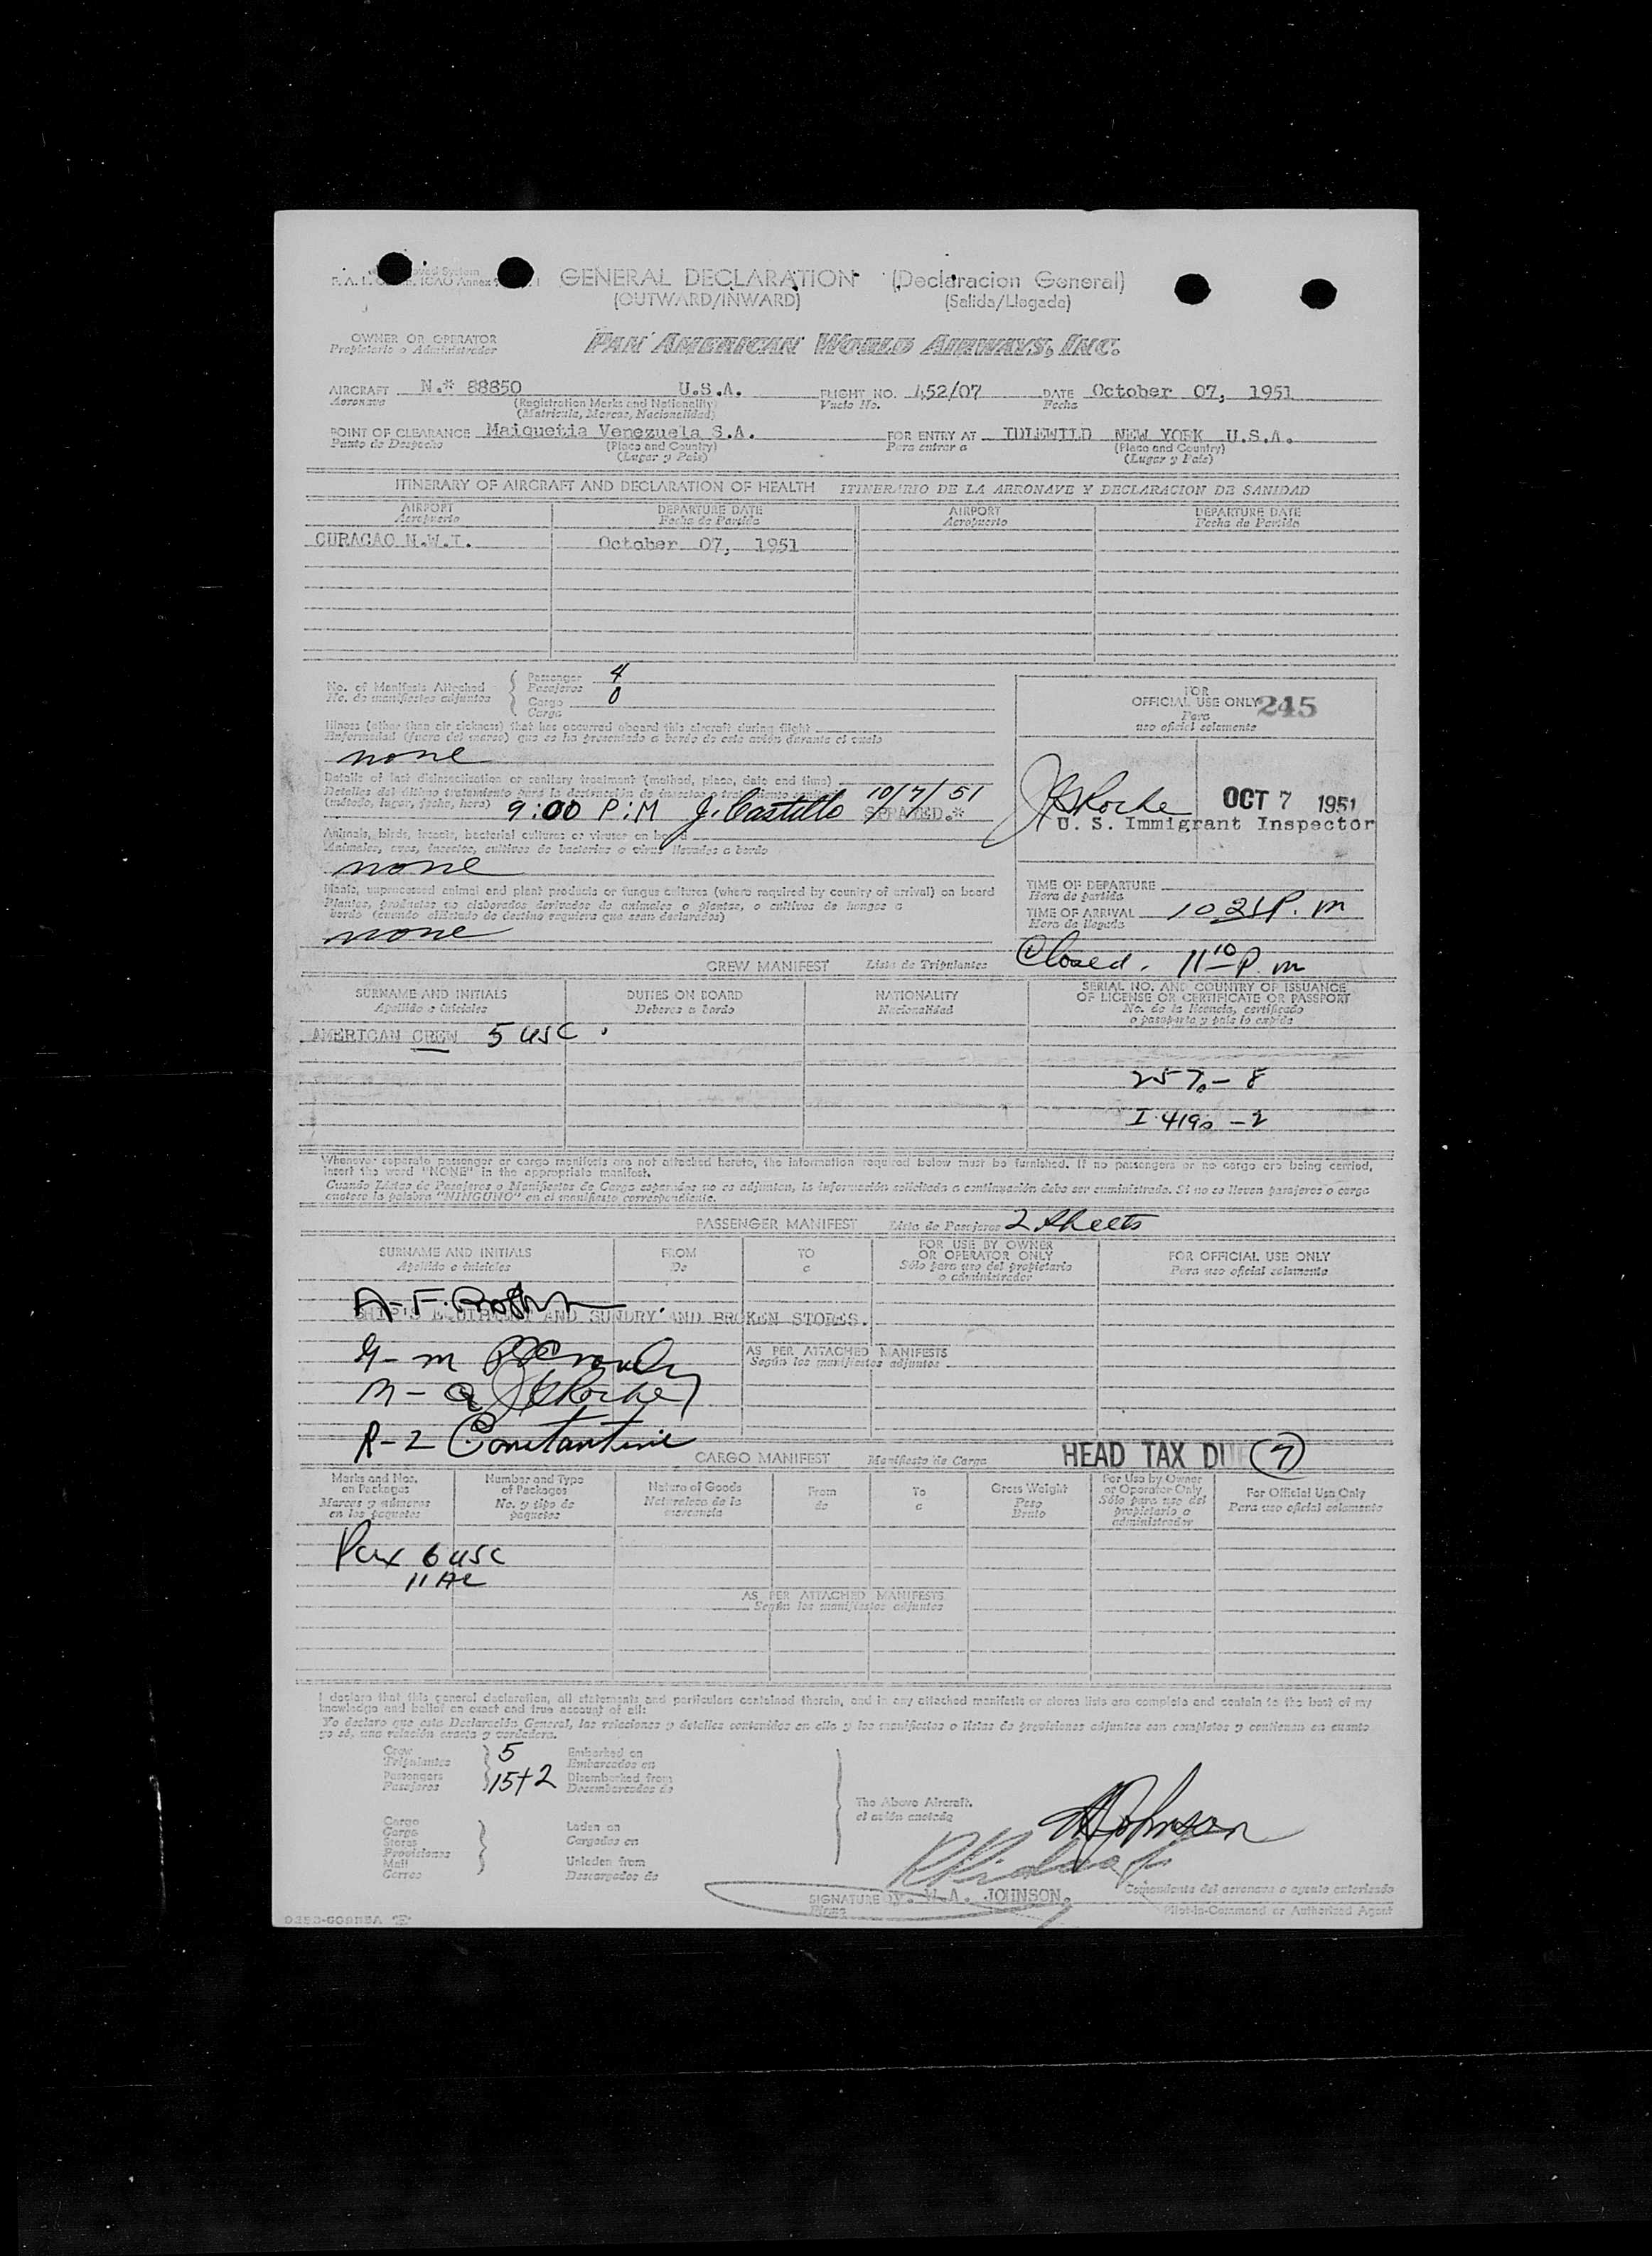 GENERAL DECLARATION (Declaracion General)
(OUTWARD/INWARD) (Salida/Llegada)
OWNER OR OPERATOR
Propietario o Administrador
PAN AMERICAN WORLD AIRWAYS, INC.
AIRCRAFT N.* 88850 U.S.A. FLIGHT NO. 452/07 DATE October 07, 1951
Aeronave (Registration Marks and Nationality) Vuelo No. Fecha
(Matricula, Marcas, Nacionalidad)
POINT OF CLEARANCE Maiquetia Venezuela S.A. FOR ENTRY AT IDLEWILD NEW YORK U.S.A.
Punto de Despacho (Place and Country) Para entrar a (Place and Country)
(Lugar y Pais) (Lugar y Pais)
ITINERARY OF AIRCRAFT AND DECLARATION OF HEALTH ITINERARIO DE LA AERONAVE Y DECLARACION DE SANIDAD
AIRPORT DEPARTURE DATE AIRPORT DEPARTURE DATE
Aeropuerto Fecha de Partida Aeropuerto Fecha de Partida
CURACAO N.W.I. October 07, 1951
No. of Manifests Attached
No. de manifiestos adjuntos
Passenger 4
Pasajeros
Cargo 0
Carga
FOR
OFFICIAL USE ONLY 245
Para
uso oficial solamente
Illness (other than air sickness) that has occurred aboard this aircraft during flight
Enfermedad (fuera del mareo) que se ha presentado a bordo de este avión durante el vuelo
none
Details of last disinsectization or sanitary treatment (method, place, date and time)
Detalles del último tratamiento para la destrucción de insectos o tratamiento sanitario
(método, lugar, fecha, hora) 9:00 P:M J. Castillo 10/7/51 SPRAYED.*
OCT 7 1951
U. S. Immigrant Inspector
Animals, birds, insects, bacterial cultures or viruses on board
Animales, aves, insectos, cultivos de bacterias o virus llevados a bordo
none
Plants, unprocessed animal and plant products or fungus cultures (where required by country of arrival) on board
Plantas, productos no elaborados derivados de animales o plantas, o cultivos de hongos a
bordo (cuando el Estado de destino requiera que sean declarados)
none
TIME OF DEPARTURE
Hora de partida
TIME OF ARRIVAL 10 21 P. m
Hora de llegada
Closed. 11 10 P. m
CREW MANIFEST Lista de Tripulantes
SURNAME AND INITIALS DUTIES ON BOARD NATIONALITY SERIAL NO. AND COUNTRY OF ISSUANCE
OF LICENSE OR CERTIFICATE OR PASSPORT
Apellido e iniciales Deberes a bordo Nacionalidad No. de la licencia, certificado
o pasaporte y pais lo expide
AMERICAN CREW 5 USC
I. 419 - 2
Whenever separate passenger or cargo manifests are not attached hereto, the information required below must be furnished. If no passengers or no cargo are being carried,
insert the word "NONE" in the appropriate manifest.
Cuando Listas de Pasajeros o Manifiestos de Carga separados no se adjuntan, la información solicitada a continuación debe ser suministrada. Si no se llevan pasajeros o carga
anotese la palabra "NINGUNO" en el manifiesto correspondiente.
PASSENGER MANIFEST Lista de Pasajeros 2 Sheets
SURNAME AND INITIALS FROM TO FOR USE BY OWNER FOR OFFICIAL USE ONLY
OR OPERATOR ONLY
Apellido e iniciales De a Sólo para uso del propietario Para uso oficial solamente
o administrador
SHIP'S EQUIPMENT AND SUNDRY AND BROKEN STORES.
AS PER ATTACHED MANIFESTS
Según los manifiestos adjuntos
R-2 Constantine
CARGO MANIFEST Manifiesto de Carga HEAD TAX DUE 7
Marks and Nos. Number and Type Nature of Goods From To Gross Weight For Use by Owner For Official Use Only
on Packages of Packages or Operator Only
Marcas y números No. y tipo de Naturaleza de la de a Peso Sólo para uso del Para uso oficial solamente
en los paquetes paquetes mercancia Bruto propietario o
administrador
Pax 6 USC
11 AL
AS PER ATTACHED MANIFESTS
Según los manifiestos adjuntos
I declare that this general declaration, all statements and particulars contained therein, and in any attached manifests or stores lists are complete and contain to the best of my
knowledge and belief an exact and true account of all:
Yo declaro que esta Declaración General, las relaciones y detalles contenidos en ella y los manifiestos o listas de provisiones adjuntos son completos y contienen en cuanto
yo sé, una relación exacta y verdadera.
Crew 5 Embarked on
Tripulantes Embarcados en
Passengers 15+2 Disembarked from
Pasajeros Desembarcados de
The Above Aircraft.
el avión anotado
Cargo
Carga
Stores
Provisiones
Mail
Correo
Laden on
Cargados en
Unladen from
Descargados de
SIGNATURE by. W.A. JOHNSON.
Firma
Comandante del aeronave o agente autorizado
Pilot-in-Command or Authorized Agent